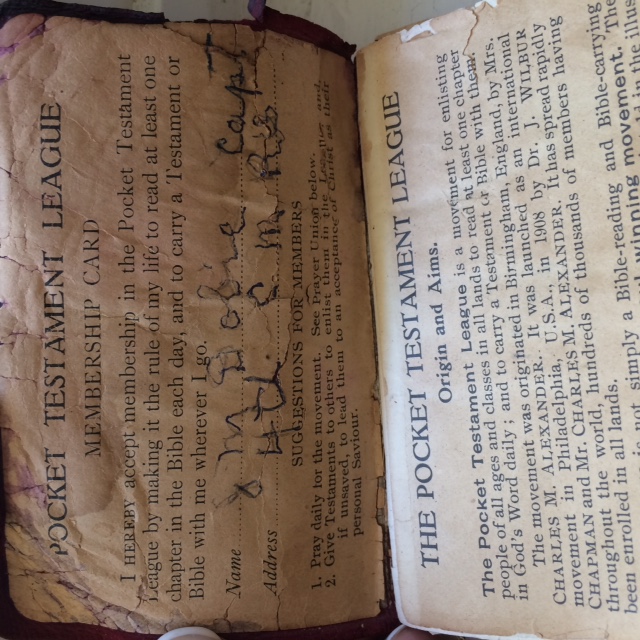 POCKET TESTAMENT LEAGUE
MEMBERSHIP CARD
I HEREBY accept membership in the Pocket Testament
League by making it the rule of my life to read at least one
chapter in the Bible each day, and to carry a Testament or
Bible with me wherever I go.
Name
Address
SUGGESTIONS FOR MEMBERS
1. Pray daily for the movement. See Prayer Union below.
2. Give Testaments to others to enlist them in the and
if unsaved, to lead them to an acceptance of Christ as their
personal Saviour.
THE POCKET TESTAMENT LEAGUE
Origin and Aims.
The Pocket Testament League is a movement for enlisting
people of all ages and classes in all lands to read at least one chapter
in God's Word daily; and to carry a Testament or Bible with them.
The movement was originated in Birmingham, England, by Mrs.
CHARLES M. ALEXANDER. It was launched as an international
movement in Philadelphia, U.S.A., in 1908 by Dr. J. WILBUR
CHAPMAN and Mr. CHARLES M. ALEXANDER. It has spread rapidly
throughout the world, hundreds of thousands of members having
been enrolled in all lands.
simply a Bible-reading and Bible-carrying
winning movement. The